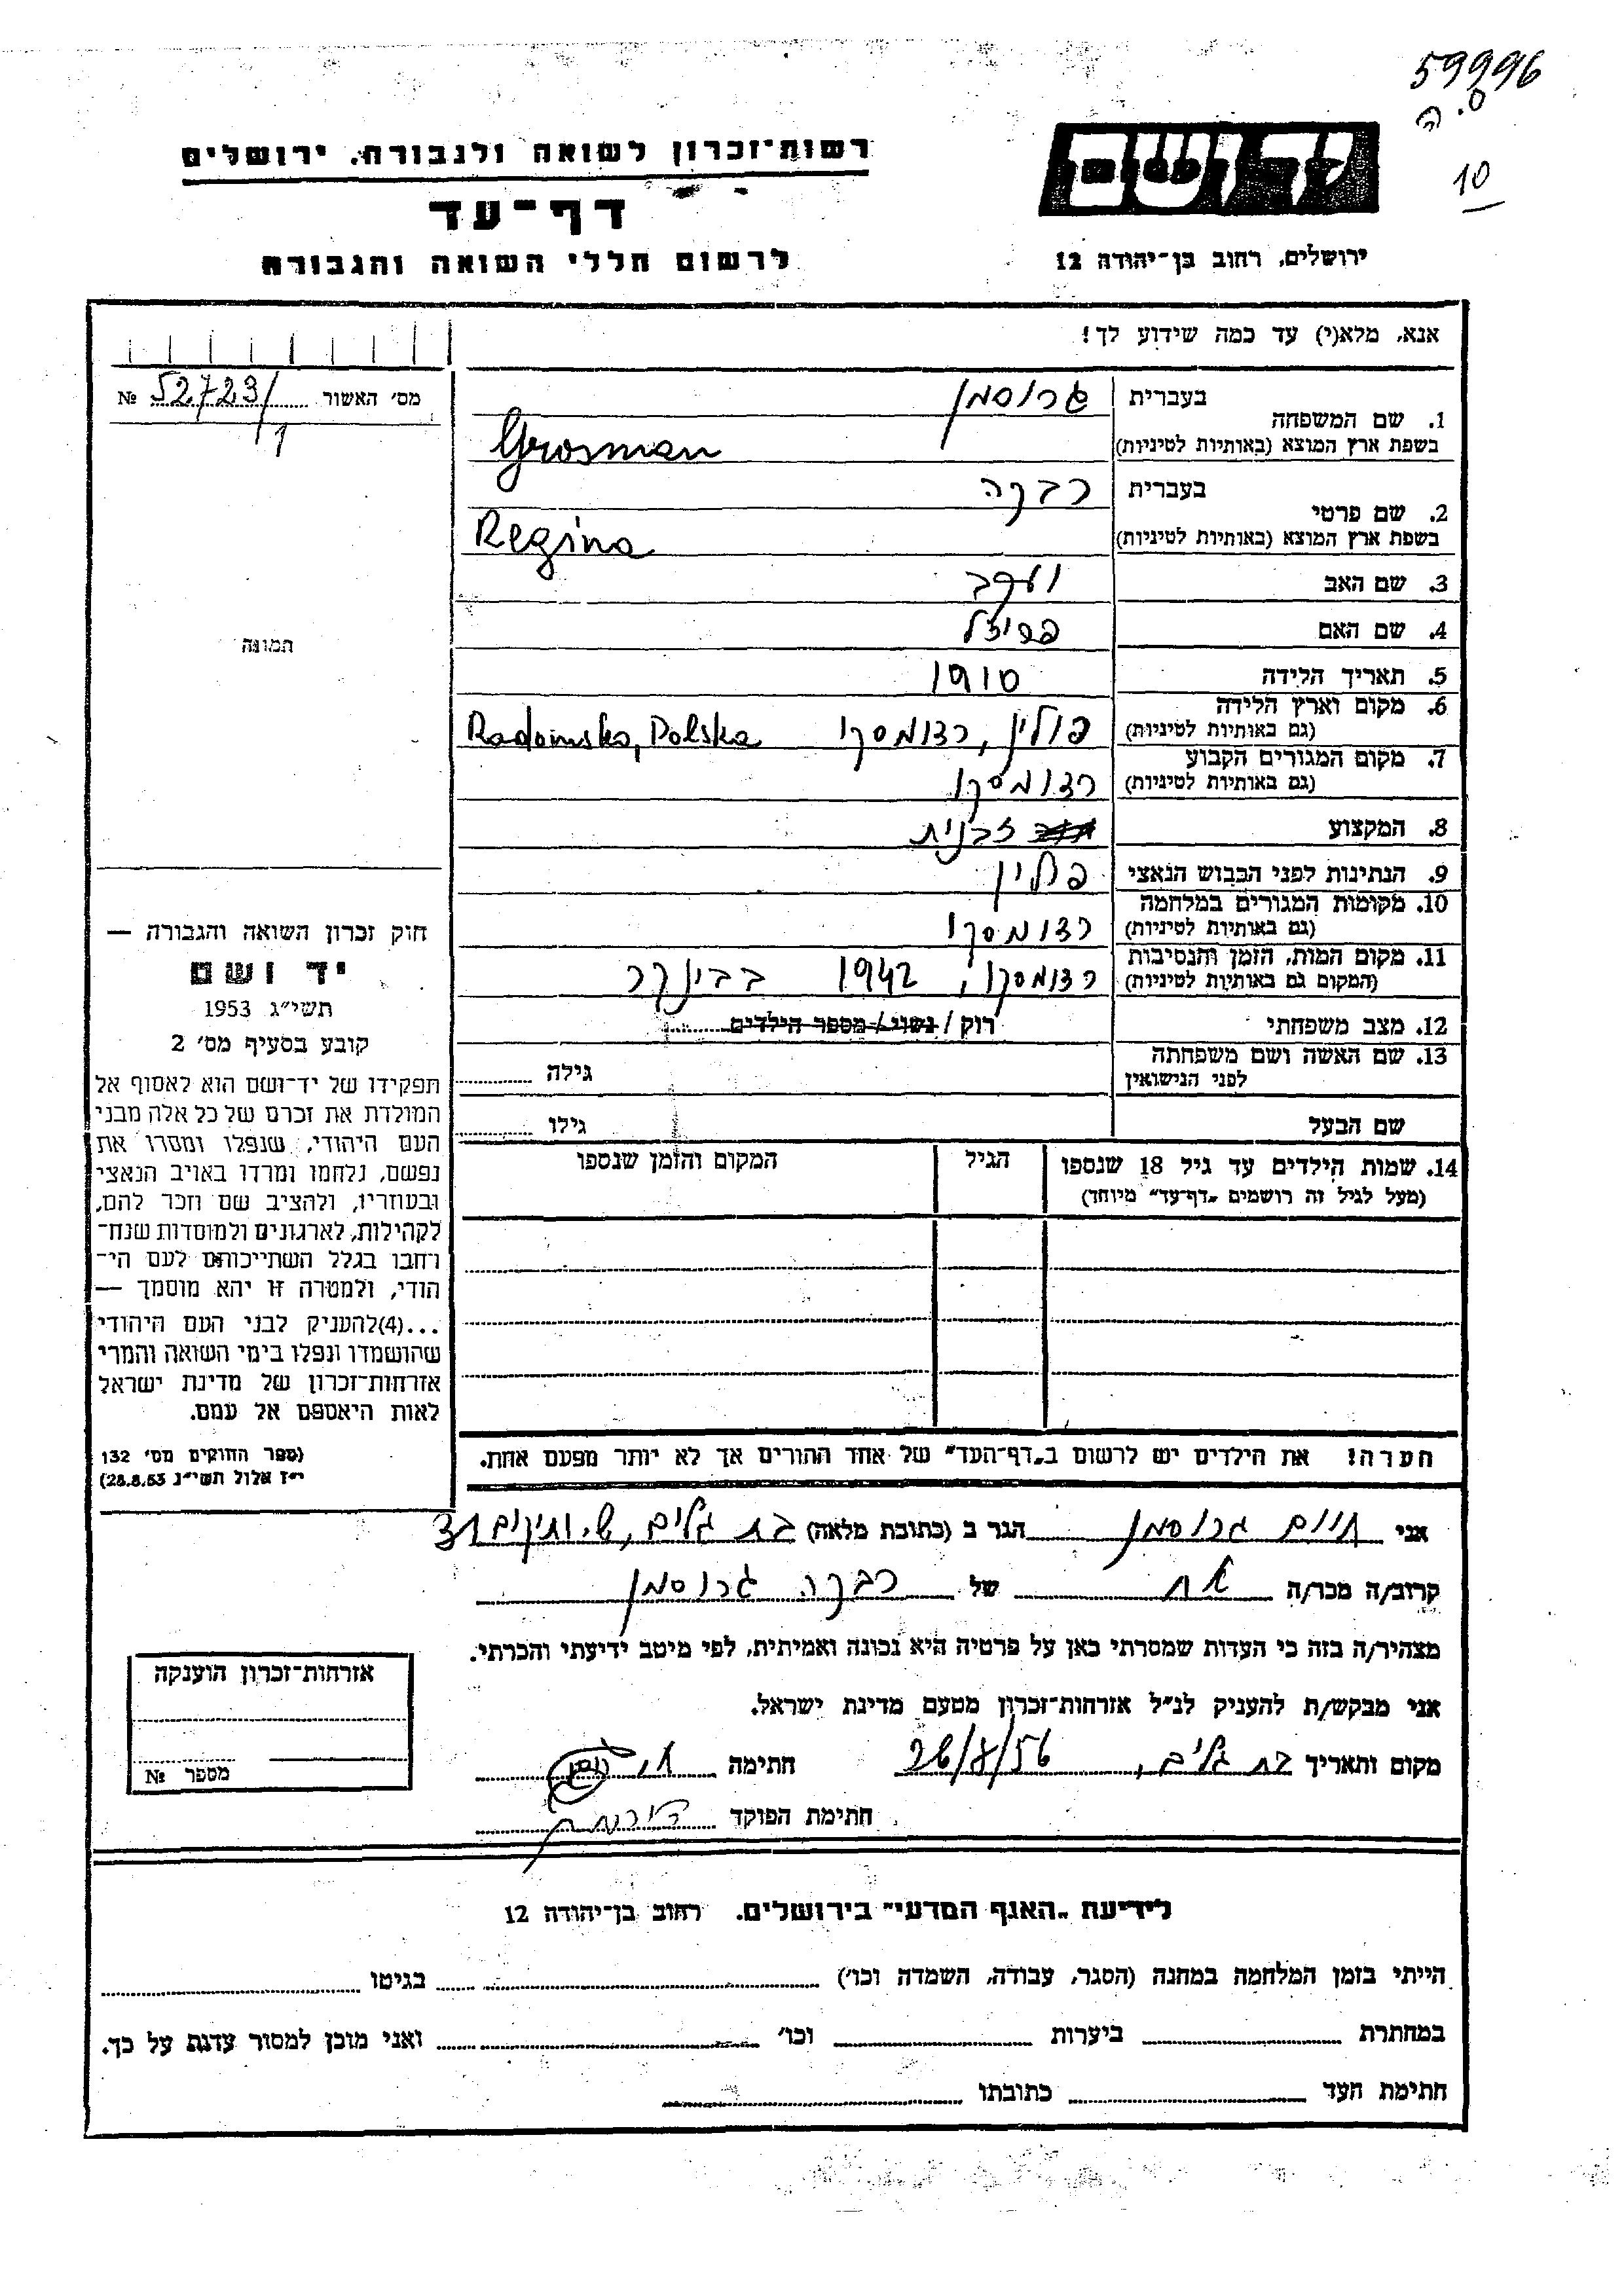 59996
ס. ה
10
יד ושם
ירושלים, רחוב בן־יהודה 12
רשות־זכרון לשואה ולגבורה, ירושלים
דף־עד
לרשום חללי השואה והגבורה
אנא, מלא(י) עד כמה שידוע לך!
מס׳ האשור № 52723/1
1. שם המשפחה
בעברית גרוסמן
בשפת ארץ המוצא (באותיות לטיניות) Grosman
2. שם פרטי
בעברית רבקה
בשפת ארץ המוצא (באותיות לטיניות) Regina
3. שם האב יעקב
4. שם האם פרייזל
5. תאריך הלידה 1910
6. מקום וארץ הלידה
(גם באותיות לטיניות) פולין, רדומסקו Radomsko, Polska
7. מקום המגורים הקבוע
(גם באותיות לטיניות) רדומסקו
8. המקצוע זבנית
9. הנתינות לפני הכבוש הנאצי פולין
10. מקומות המגורים במלחמה
(גם באותיות לטיניות) רדומסקו
11. מקום המות, הזמן והנסיבות
(המקום גם באותיות לטיניות) רדומסקו, 1942 בבינקר
12. מצב משפחתי רוק / נשוי / מספר הילדים
13. שם האשה ושם משפחתה
לפני הנישואין גילה
שם הבעל גילו
14. שמות הילדים עד גיל 18 שנספו הגיל המקום והזמן שנספו
(מעל לגיל זה רושמים „דף־עד״ מיוחד)
תמונה
חוק זכרון השואה והגבורה —
יד ושם
תשי״ג 1953
קובע בסעיף מס׳ 2
תפקידו של יד־ושם הוא לאסוף אל
המולדת את זכרם של כל אלה מבני
העם היהודי, שנפלו ומסרו את
נפשם, נלחמו ומרדו באויב הנאצי
ובעוזריו, ולהציב שם וזכר להם,
לקהילות, לארגונים ולמוסדות שנח־
רחבו בגלל השתייכותם לעם הי־
הודי, ולמטרה זו יהא מוסמך —
...(4)להעניק לבני העם היהודי
שהושמדו ונפלו בימי השואה והמרי
אזרחות־זכרון של מדינת ישראל
לאות היאספם אל עמם.
(ספר החוקים מס׳ 132
י״ז אלול תשי״ג 28.8.53)
הערה! את הילדים יש לרשום ב„דף־העד״ של אחד ההורים אך לא יותר מפעם אחת.
אני חיים גרוסמן הגר ב (כתובת מלאה) בת גלים, ש. ותיקים
קרוב/ה מכר/ה אח של רבקה גרוסמן
מצהיר/ה בזה כי העדות שמסרתי כאן על פרטיה היא נכונה ואמיתית, לפי מיטב ידיעתי והכרתי.
אני מבקש/ת להעניק לנ״ל אזרחות־זכרון מטעם מדינת ישראל.
מקום ותאריך בת גלים, 26/8/56 חתימה
חתימת הפוקד
אזרחות־זכרון הוענקה
מספר №
לידיעת „האגף המדעי״ בירושלים. רחוב בן־יהודה 12
הייתי בזמן המלחמה במחנה (הסגר, עבודה, השמדה וכו׳) בגיטו
במחתרת ביערות וכו׳ ואני מוכן למסור עדות על כך.
חתימת העד כתובתו